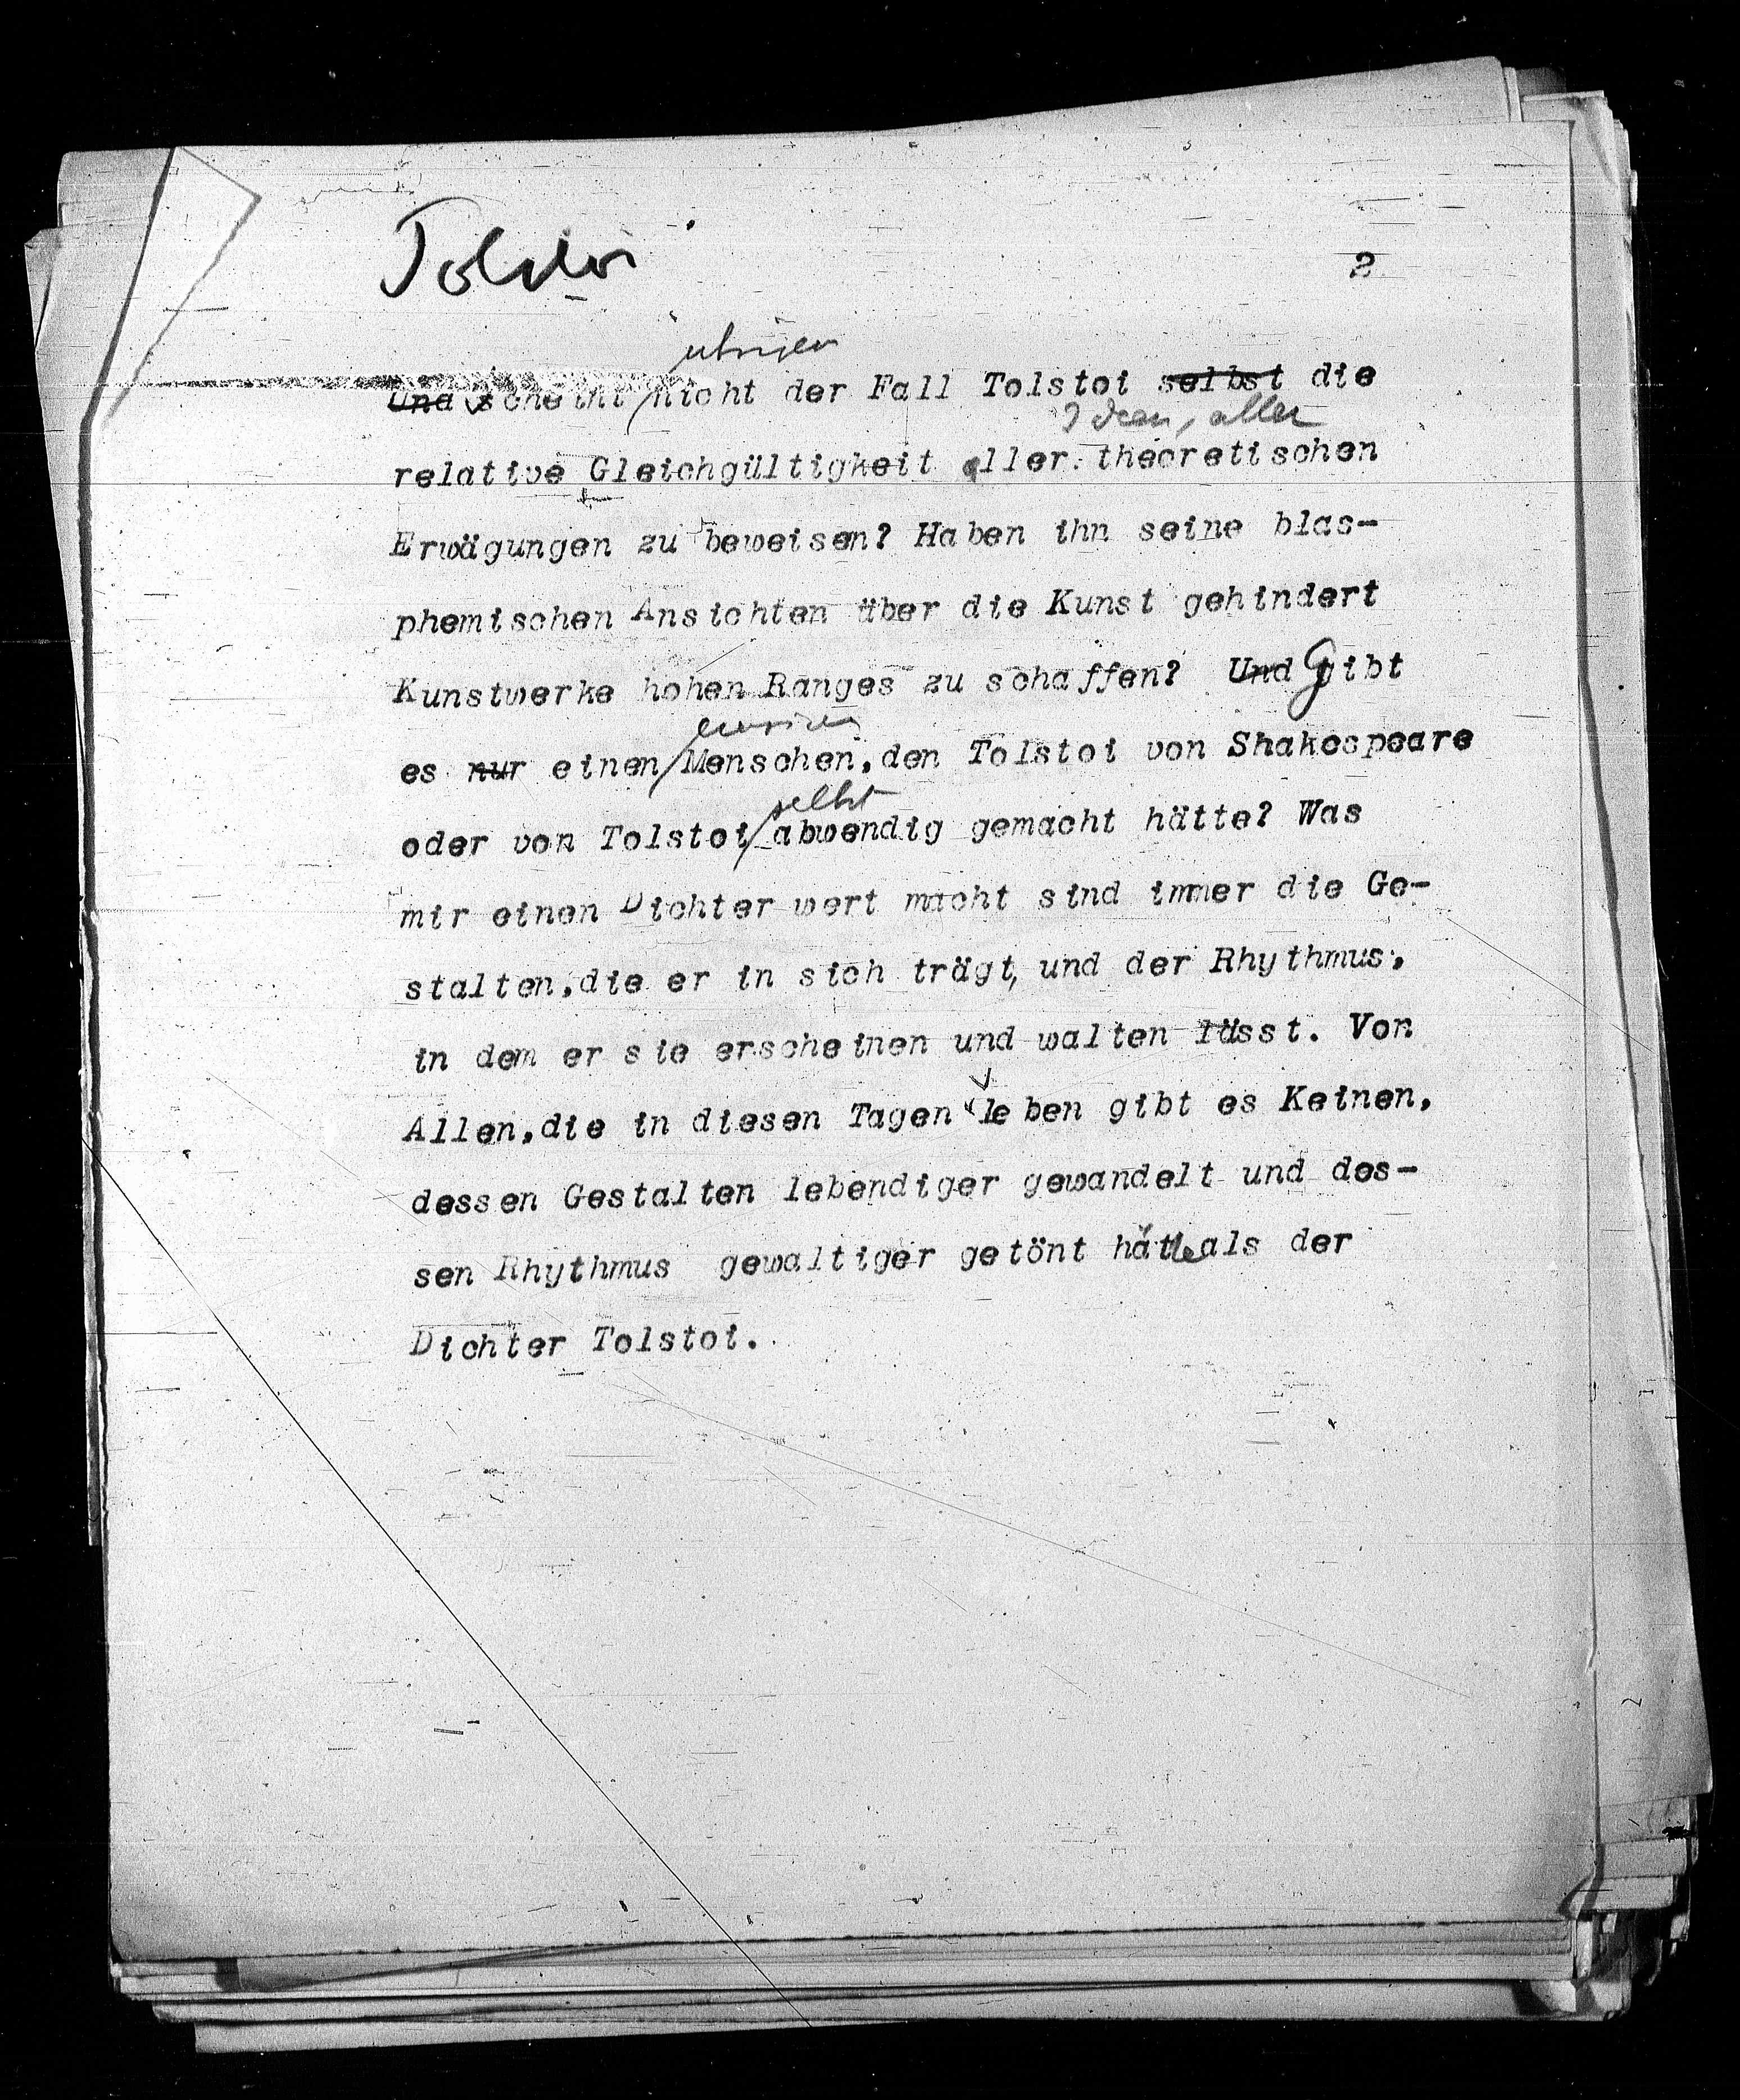 Tolstoi
2
übrigen
Und scheint nicht der Fall Tolstoi selbst die
Ideen, aller
relative Gleichgültigkeit aller theoretischen
Erwägungen zu beweisen? Haben ihn seine blas-
phemischen Ansichten über die Kunst gehindert
Kunstwerke hohen Ranges zu schaffen? Und Gibt
es nur einen Menschen, den Tolstoi von Shakespeare
selbst
oder von Tolstoi abwendig gemacht hätte? Was
mir einen Dichter wert macht sind immer die Ge-
stalten, die er in sich trägt, und der Rhythmus,
in dem er sie erscheinen und walten lässt. Von
Allen, die in diesen Tagen leben gibt es Keinen,
dessen Gestalten lebendiger gewandelt und des-
sen Rhythmus gewaltiger getönt hätte als der
Dichter Tolstoi.